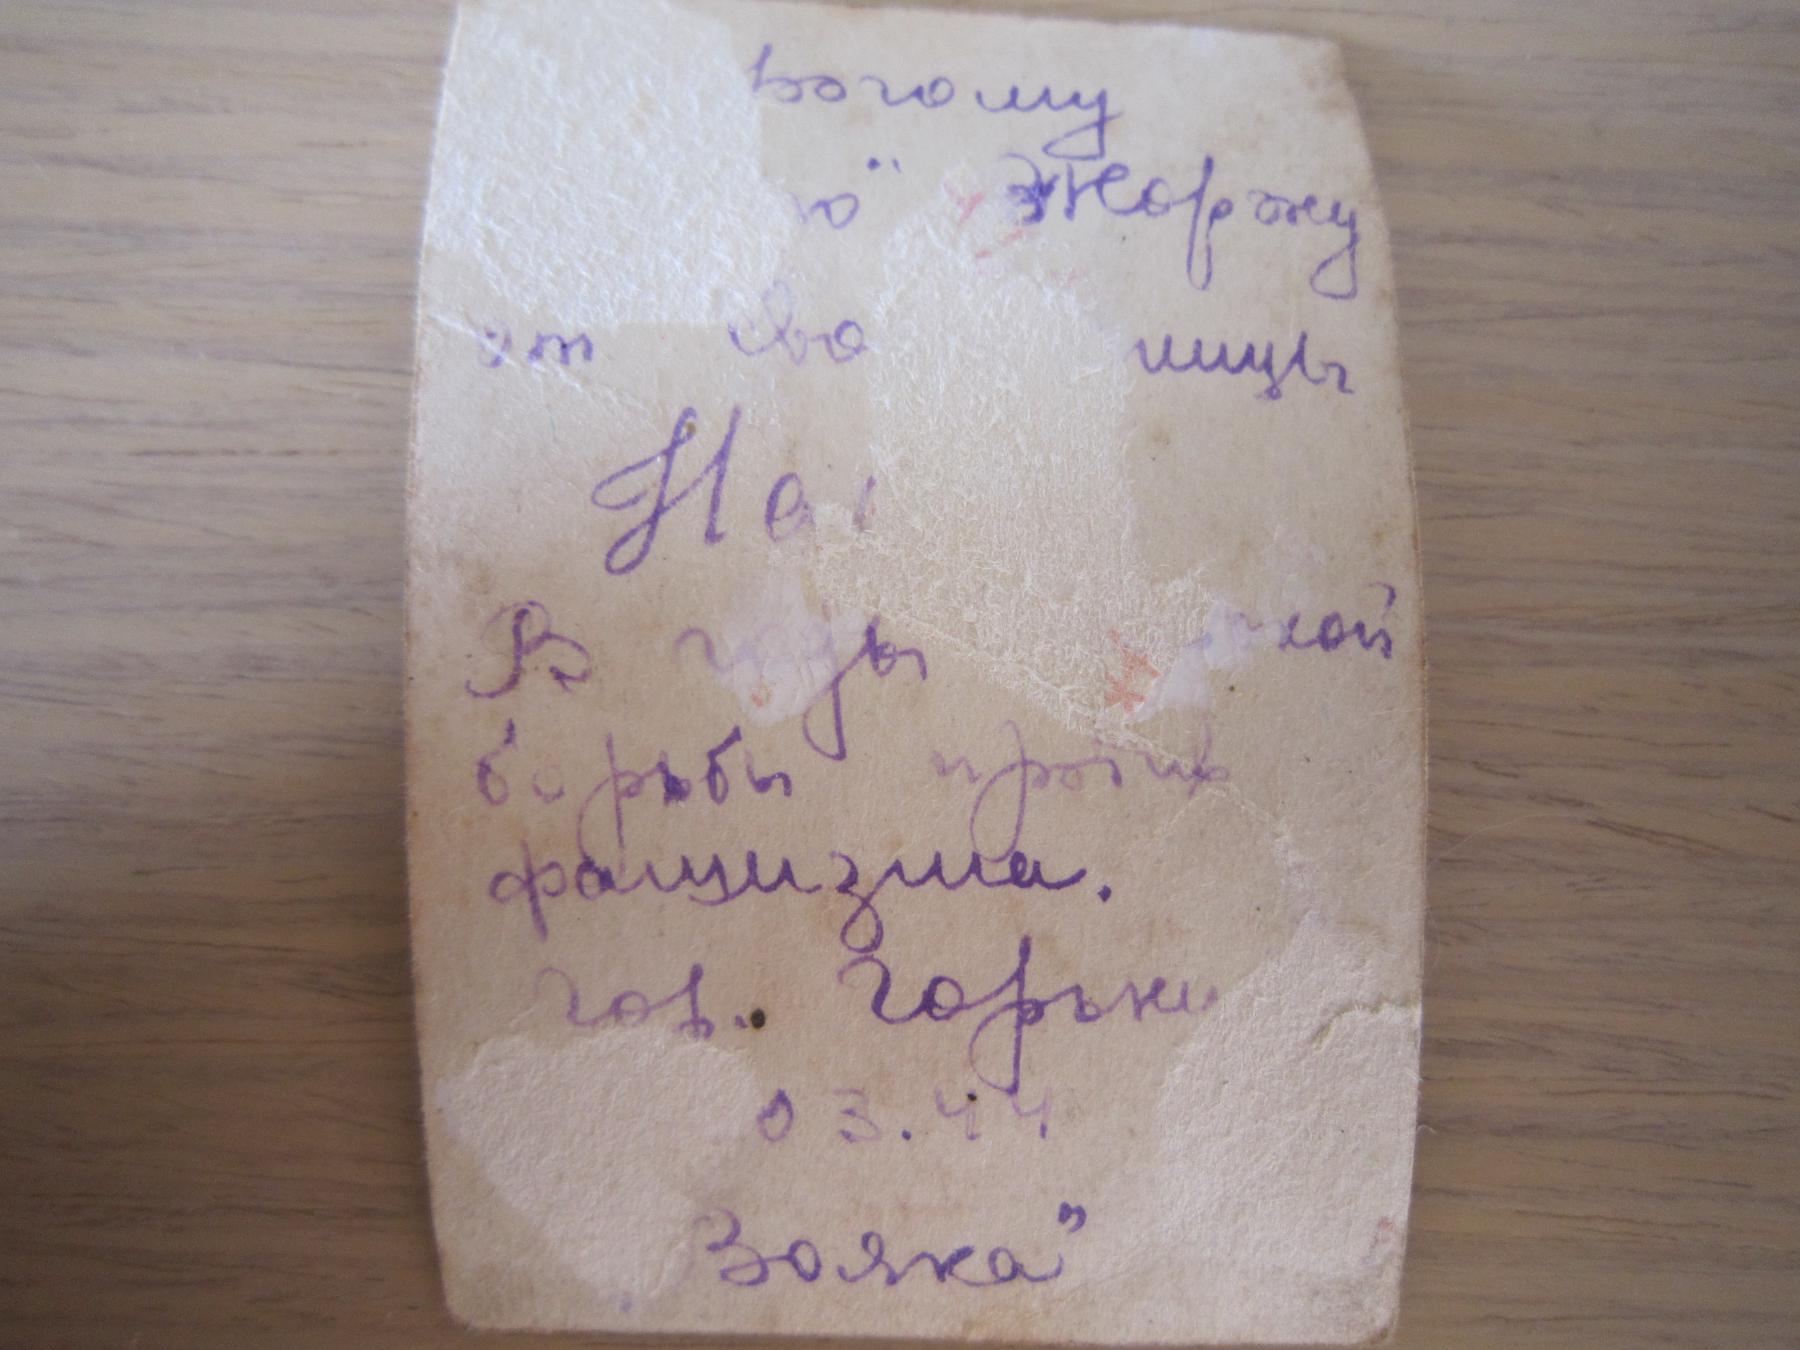 рогому
ю" Жоржу
от сво ницы
На
В годы ской
борьбы против
фашизма.
гор. Горьки
03.44
Зояка"